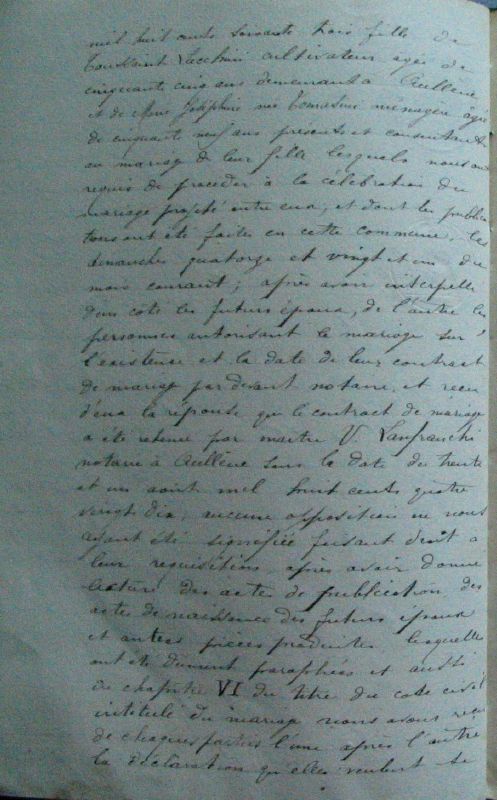 mil huit cents soixante trois fille de
Toussaint Lucchini cultivateur agé de
cinquante cinq ans demeurant a Aullène
et de Mme Joséphine née Tomasini ménagère âgée
de cinquante neuf ans presents et consentants
au mariage de leur fille lesquels nous ont
requis de proceder à la célébration du
mariage projeté entre eux, et dont les publica
tions ont été faites en cette commune, les
dimanches quatorze et vingt et un du
mois courant; après avoir interpellé
d'un coté les futurs époux, de l'autre les
personnes autorisant le mariage sur
l'existence et la date de leur contract
de mariage par devant notaire, et reçu
d'eux la réponse que le contract de mariage
a été retenue par maitre V. Lanfranchi
notaire à Aullène sous la date du trente
et un août mil huit cents quatre
vingt dix, aucune opposition ne nous
ayant été signifiée faisant droit a
leur requisition, après avoir donné
lecture des actes de publication des
actes de naissance des futurs époux
et autres pièces produites lesquelles
ont été dûment paraphées et aussi
du chapitre VI du titre du code civil
intitulé du mariage nous avons reçu
de chaques parties l'une après l'autre
la déclaration qu'elles veulent se